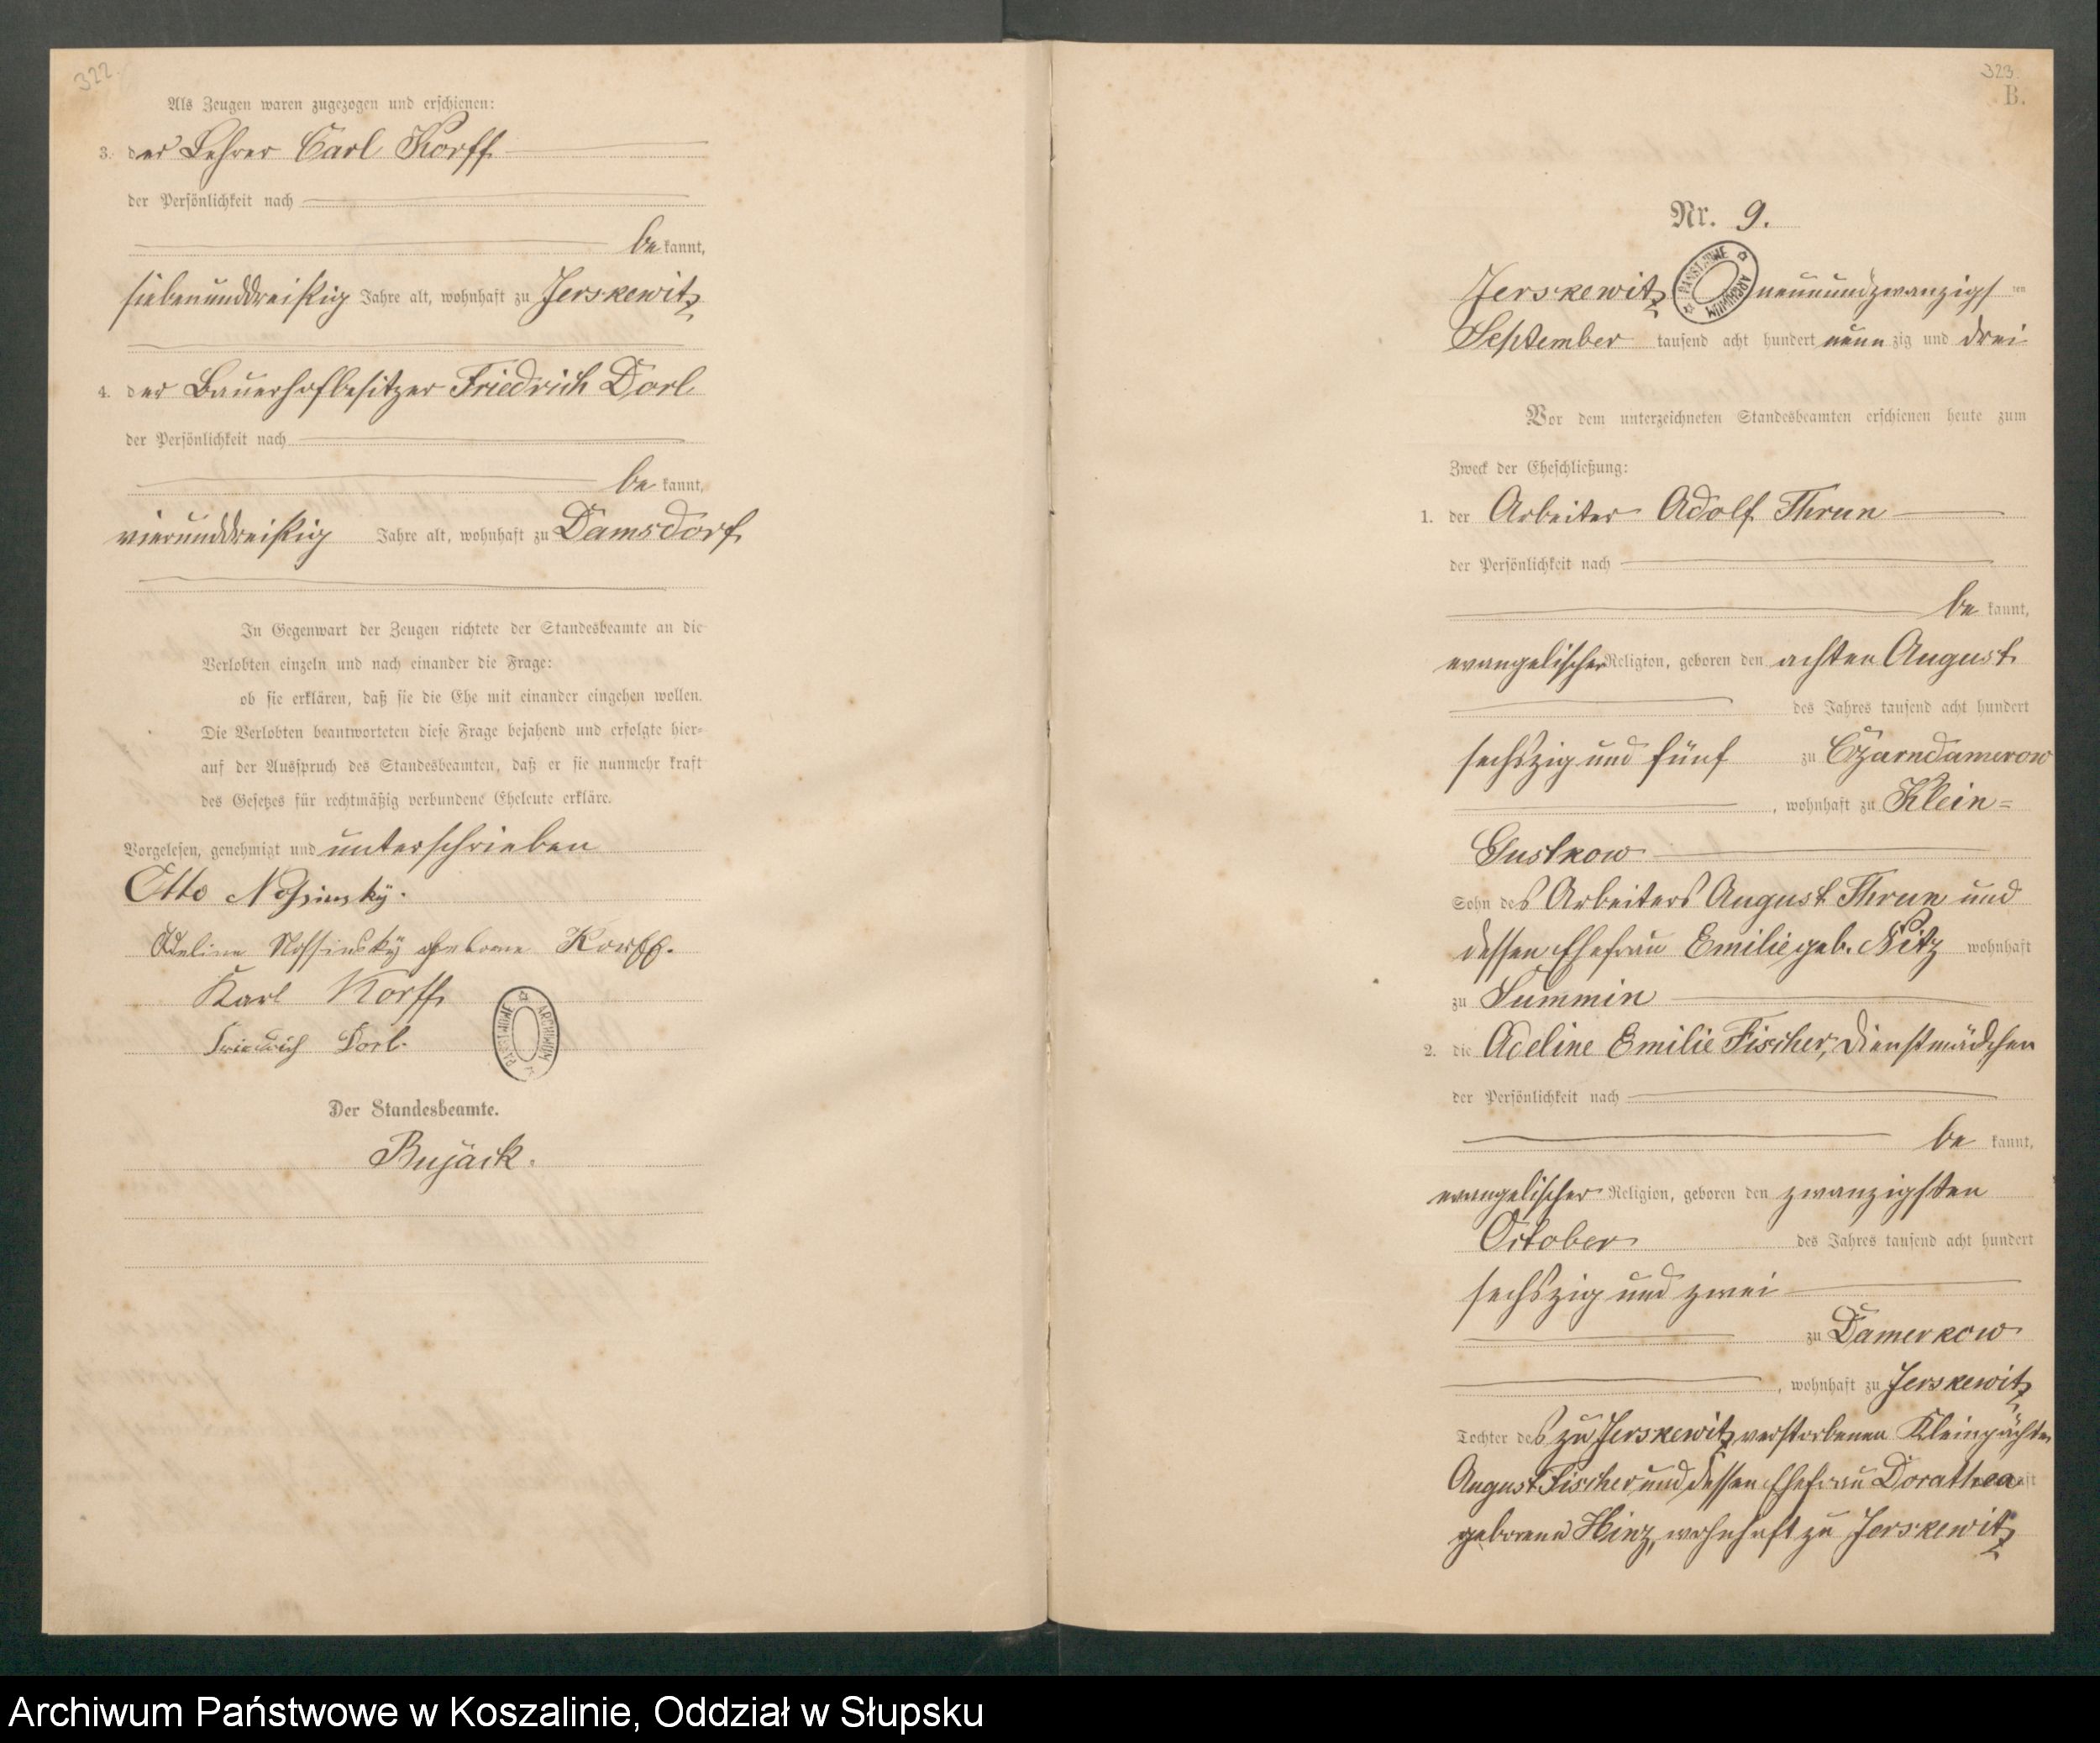 322.
Als Zeugen waren zugezogen und erschienen:
3. der Lehrer Carl Korff
der Persönlichkeit nach
be kannt,
siebenunddreißig Jahre alt, wohnhaft zu Jerskewitz
4. der Bauerhofbesitzer Friedrich Dorl
der Persönlichkeit nach
be kannt,
vierunddreißig Jahre alt, wohnhaft zu Damsdorf
In Gegenwart der Zeugen richtete der Standesbeamte an die
Verlobten einzeln und nach einander die Frage:
ob sie erklären, daß sie die Ehe mit einander eingehen wollen.
Die Verlobten beantworteten diese Frage bejahend und erfolgte hier-
auf der Ausspruch des Standesbeamten, daß er sie nunmehr kraft
des Gesetzes für rechtmäßig verbundene Eheleute erkläre.
Vorgelesen, genehmigt und unterschrieben
Otto Nossinsky.
Adeline Nossinsky geborene Korff.
Karl Korff
Friedrich Dorl.
ARCHIWUM PAŃSTWOWE
Der Standesbeamte.
Bujack.
323.
B.
Nr. 9.
Jerskewitz neunundzwanzigsten
ARCHIWUM PAŃSTWOWE
September tausend acht hundert neunzig und drei
Vor dem unterzeichneten Standesbeamten erschienen heute zum
Zweck der Eheschließung:
1. der Arbeiter Adolf Thrun
der Persönlichkeit nach
be kannt,
evangelischer Religion, geboren den achten August
des Jahres tausend acht hundert
sechszig und fünf zu Czarndamerow
, wohnhaft zu Klein=
Gustkow
Sohn des Arbeiters August Thrun und
dessen Ehefrau Emilie geb. Nitz wohnhaft
zu Summin
2. die Adeline Emilie Fischer, Dienstmädchen
der Persönlichkeit nach
be kannt,
evangelischer Religion, geboren den zwanzigsten
October des Jahres tausend acht hundert
sechszig und zwei
zu Damerkow
, wohnhaft zu Jerskewitz
Tochter des zu Jerskewitz verstorbenen Kleinpächter
August Fischer und dessen Ehefrau Dorathea
geborene Hinz, wohnhaft zu Jerskewitz
Archiwum Państwowe w Koszalinie, Oddział w Słupsku